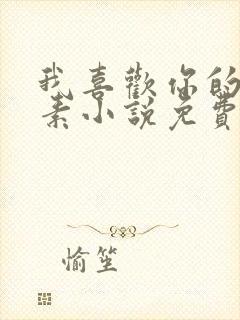 我喜歡你的
素小說免費
愉笙